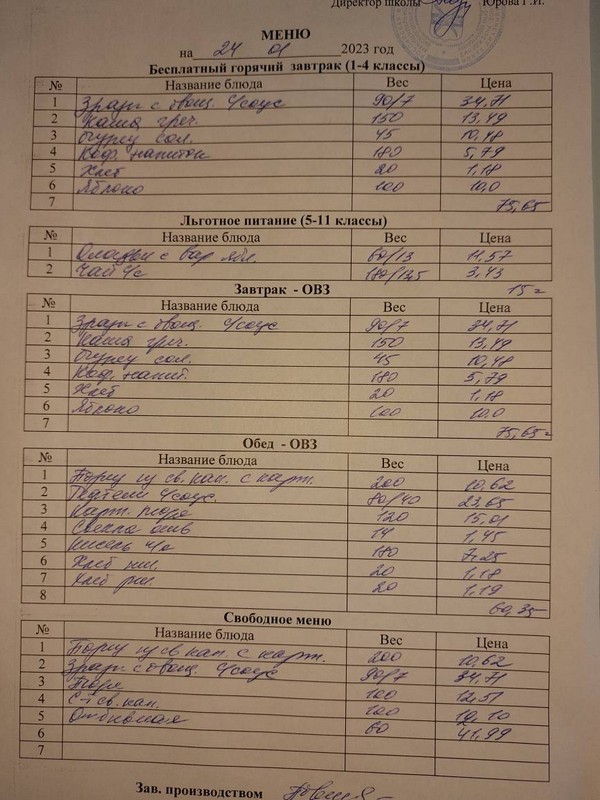 Директор школы Юрова Г.И.
МЕНЮ
на 24 01 2023 год
Бесплатный горячий завтрак (1-4 классы)
№ Название блюда Вес Цена
1 Зразы с овощ. с/соус 90/7 34,71
2 Каша греч. 150 13,49
3 Огурец сол. 45 10,48
4 Коф. напиток 180 5,79
5 Хлеб 20 1,18
6 Яблоко 100 10,0
7 75,65
Льготное питание (5-11 классы)
№ Название блюда Вес Цена
1 Оладьи с вар. ябл. 60/13 11,57
2 Чай с/с 180/13,5 3,43
15=
Завтрак - ОВЗ
№ Название блюда Вес Цена
1 Зразы с овощ. с/соус 90/7 34,71
2 Каша греч. 150 13,49
3 Огурец сол. 45 10,48
4 Коф. напит. 180 5,79
5 Хлеб 20 1,18
6 Яблоко 100 10,0
7 75,65=
Обед - ОВЗ
№ Название блюда Вес Цена
1 Борщ из св. кап. с карт. 200 10,62
2 Тефтели с/соус. 80/40 23,65
3 Карт. пюре 120 15,01
4 Свекла 14 1,45
5 Кисель 180 7,25
6 Хлеб пш. 20 1,18
7 Хлеб рж. 20 1,19
8 60,35=
Свободное меню
№ Название блюда Вес Цена
1 Борщ из св. кап. с карт. 200 10,62
2 Зразы с овощ. с/соус 90/7 34,71
3 Пюре 100 12,51
4 С-т св. кап. 100 10,10
5 Отбивная 60 41,99
6
7
Зав. производством